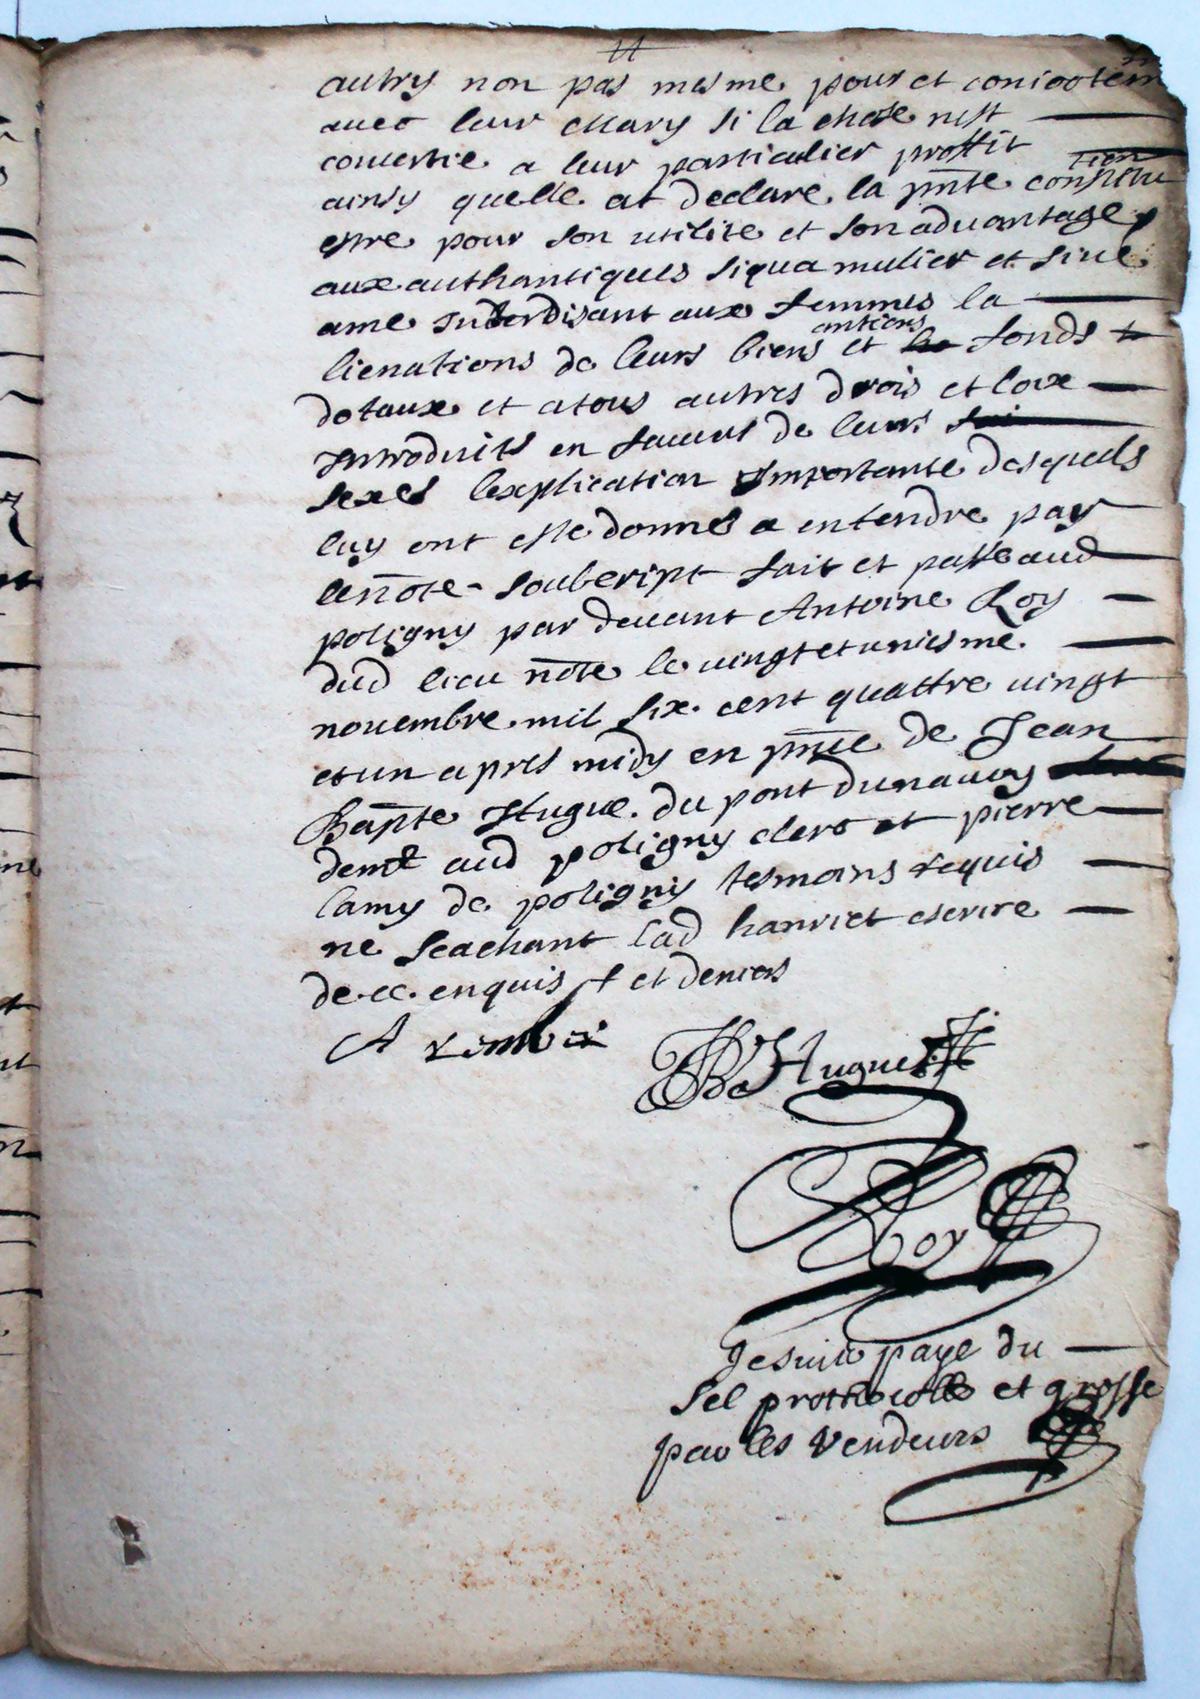 autry non pas mesme pour et conjootem
auec leur mary si la chose nest
conuertie a leur particulier proffit
ainsy quelle at declare la pnte constitu
tion
estre pour son utilite et son aduantage
aux authantiques siqua mulier et siue
ame Interdisant aux femmes la
lienations de leurs biens antiens et fonds
dotaux et atous autres drois et loix
Introduits en faueur de leurs
sexes lexplication Importante desquels
luy ont este donnes a entendre par
le note soubscript fait et passe aud
poligny par deuant Antoine Roy
dud lieu note le vingtetuniesme
nouembre mil six cent quattre vingt
et un apres midy en pnce de Jean
Bapte Hugue du pont dunauoy
demt aud poligny clerc et pierre
lamy de poligny tesmoins requis
ne scachant lad hanriet escrire
de ce enquis et demois
A
JB Hugue
Roy
Je suis paye du
sel prothocolle et grosse
par les vendeurs